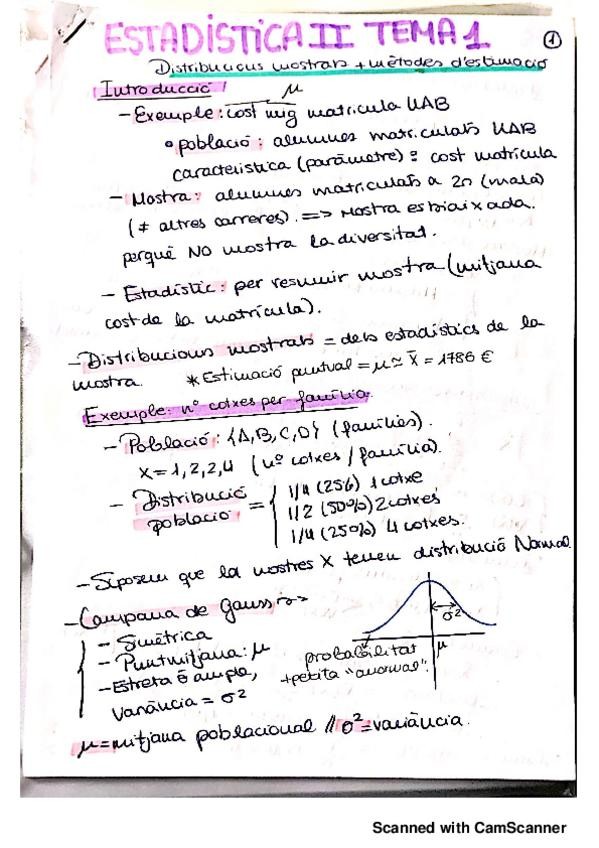 ESTADÍSTICA II TEMA 1
1
Distribucions mostrals + mètodes d'estimació
Introducció
μ
- Exemple: cost mig matricula UAB
• població: alumnes matriculats UAB
característica (paràmetre): cost matrícula
- Mostra: alumnes matriculats a 2n (mala)
(≠ altres carreres) => Mostra esbiaixada.
perquè NO mostra la diversitat.
- Estadístic: per resumir mostra (mitjana
cost de la matrícula).
- Distribucions mostrals = dels estadístics de la
mostra. * Estimació puntual = μ ≃ x̄ = 1786 €
Exemple: nº cotxes per família.
- Població: {A,B,C,D} (famílies).
X = 1,2,2,4 (nº cotxes / família).
- Distribució població = { 1/4 (25%) 1 cotxe
1/2 (50%) 2 cotxes
1/4 (25%) 4 cotxes.
- Siposem que la nostres X tenen distribució Normal.
- Campana de Gauss
- Simètrica
- Punt mitjana: μ
- Estreta o ampla,
Variància = σ²
σ²
μ
probabilitat
+petita "anormal".
μ = mitjana poblacional // σ² = variància.
Scanned with CamScanner